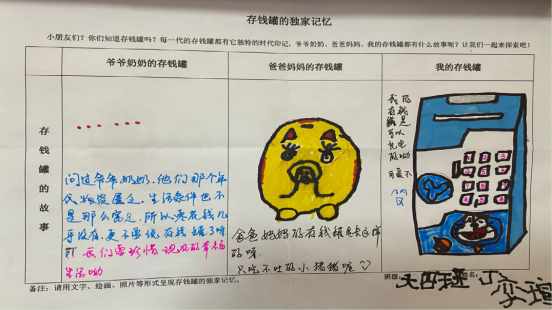 存钱罐的独家记忆
小朋友们？你们知道存钱罐吗？每一代的存钱罐都有它独特的时代印记，爷爷奶奶、爸爸妈妈、我的存钱罐都有什么故事呢？让我们一起来探索吧！
爷爷奶奶的存钱罐
爸爸妈妈的存钱罐
我的存钱罐
存钱罐的故事
问过爷爷奶奶，他们那个年
代物资匮乏，生活条件也不
是那么富足，所以零花钱几
乎没有，更不要说存钱罐了哦
我们要珍惜现在的幸福
生活呦
爸爸妈妈的存钱罐是长这样
的呀
只吃不吐的小猪猪喔
我的
存钱
罐是
可以
的呦
可爱不
班级：大四班
备注：请用文字、绘画、照片等形式呈现存钱罐的独家记忆。